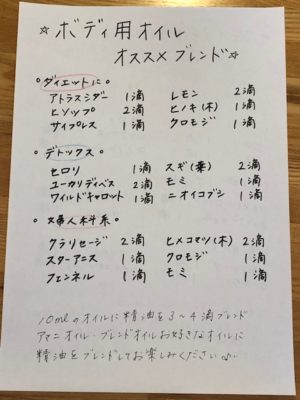 ☆ ボディ用オイル
オススメブレンド☆
○ダイエットに
アトラスシダー 1滴 レモン 2滴
ヒソップ 2滴 ヒノキ(木) 1滴
サイプレス 1滴 クロモジ 1滴
○デトックス
セロリ 1滴 スギ(葉) 2滴
ユーカリディベス 2滴 モミ 1滴
ワイルドキャロット 1滴 ニオイコブシ 1滴
○婦人科系
クラリセージ 2滴 ヒメコマツ(木) 2滴
スターアニス 1滴 クロモジ 1滴
フェンネル 1滴 モミ 1滴
10mlのオイルに精油を3〜4滴ブレンド
アマニオイル・ブレンドオイルお好きなオイルに
精油をブレンドしてお楽しみください♪